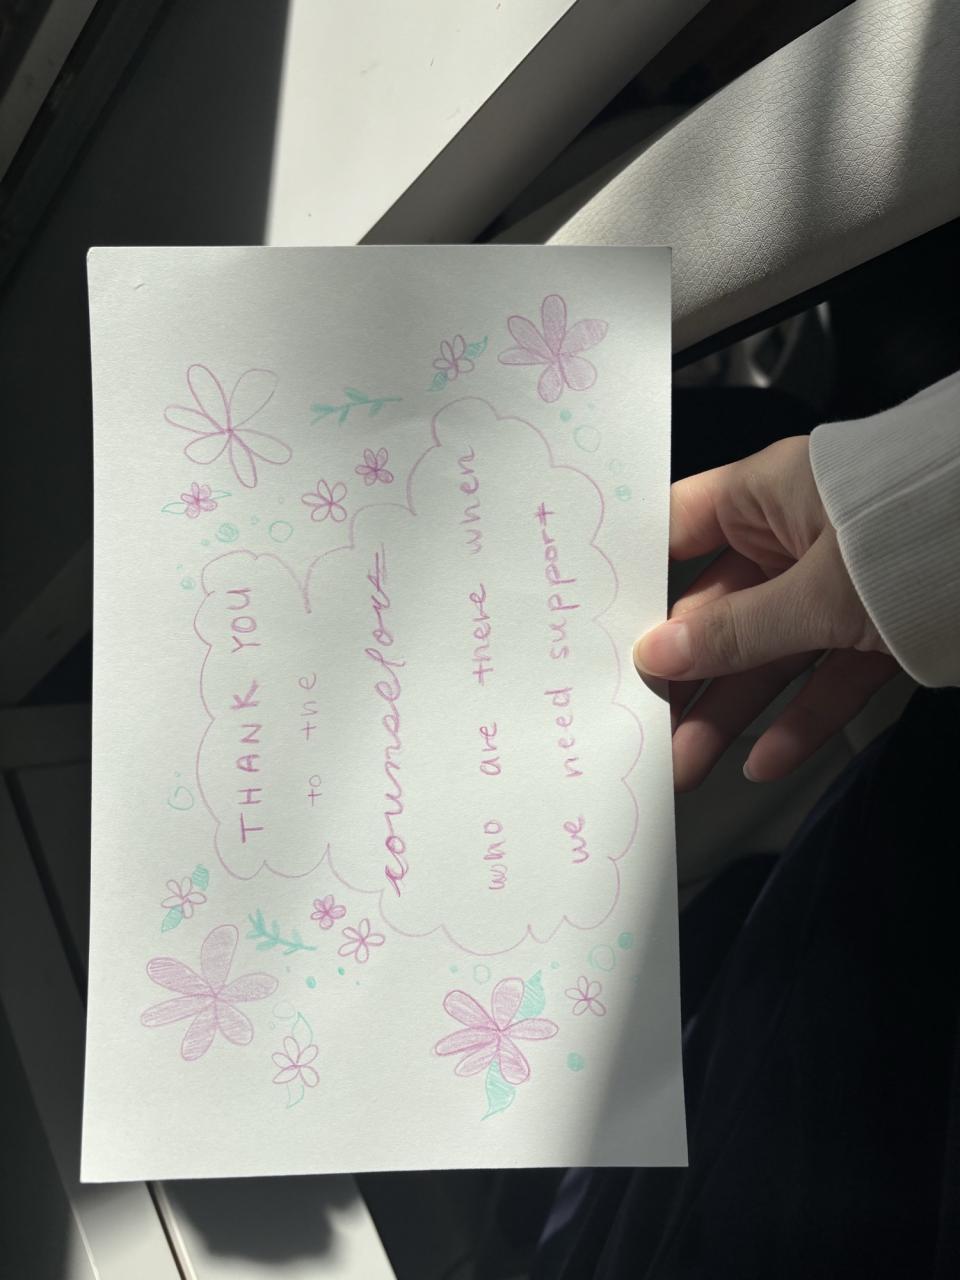 THANK YOU
to the
counselors
who are there when
we need support